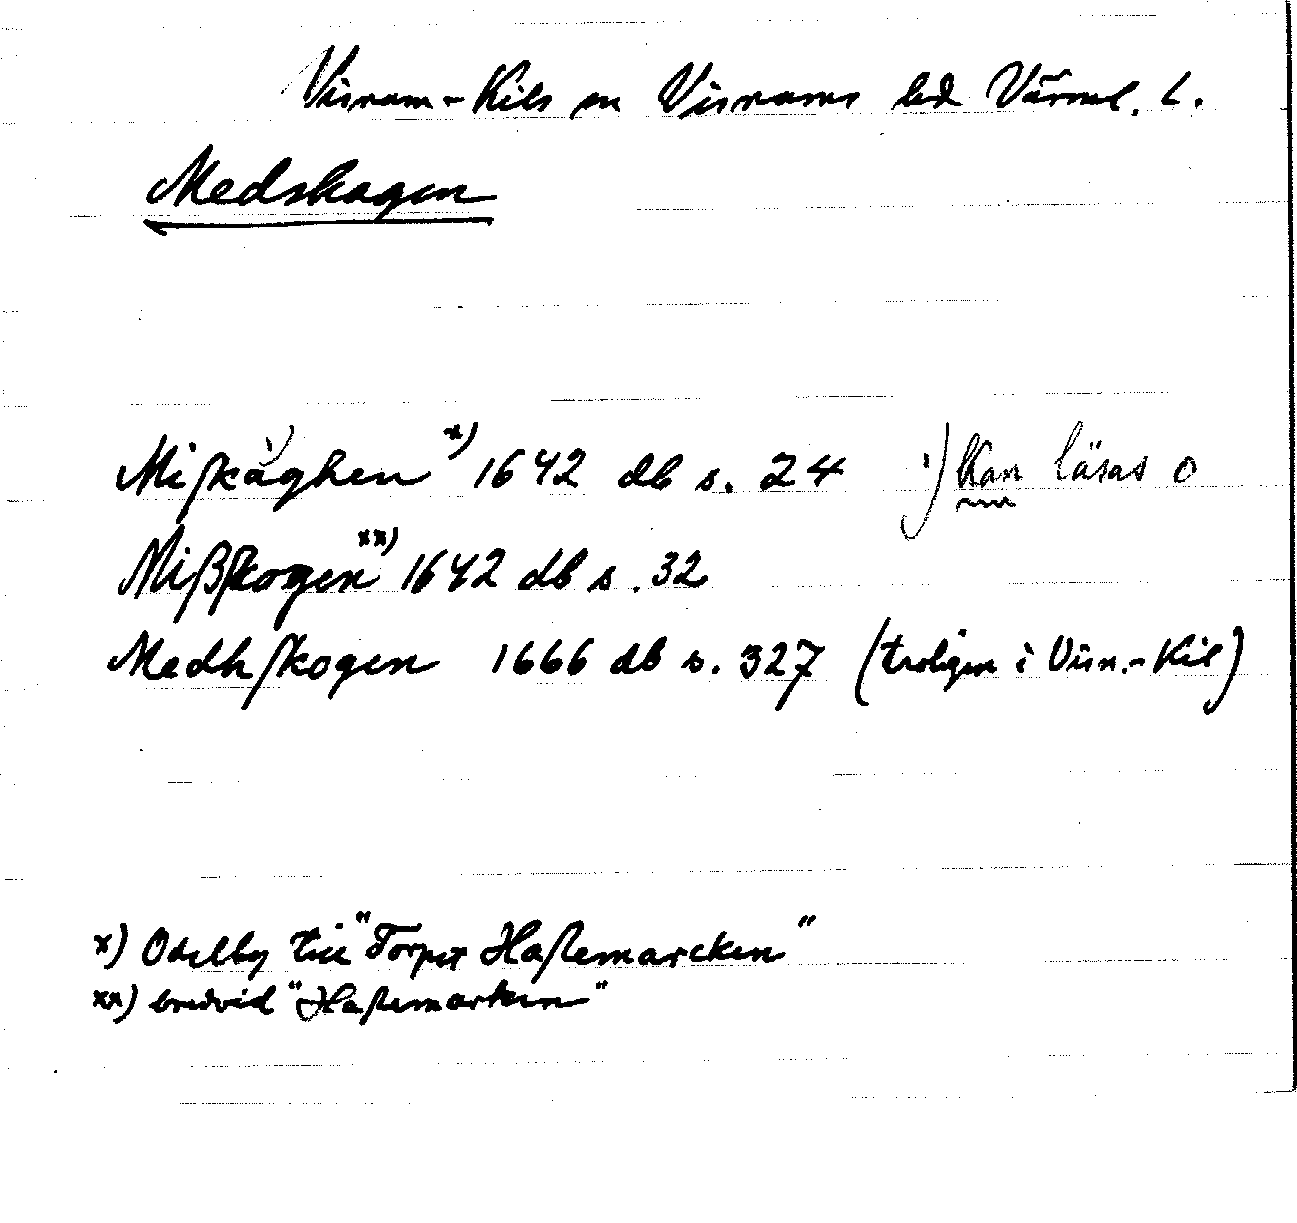 Visnum-Kils sn Visnums hd Värml. l.
Medskogen
Mißkåghen ˣ⁾ 1642 db s. 24 ¹) Kan läsas o
Mißskogen ˣˣ⁾ 1642 db s. 32
Medhskogen 1666 db s. 327 (troligen i Visn.-Kil)
x) Ödelby till "Torpet Haßlemarcken"
xx) bredvid "Haßlemarken"